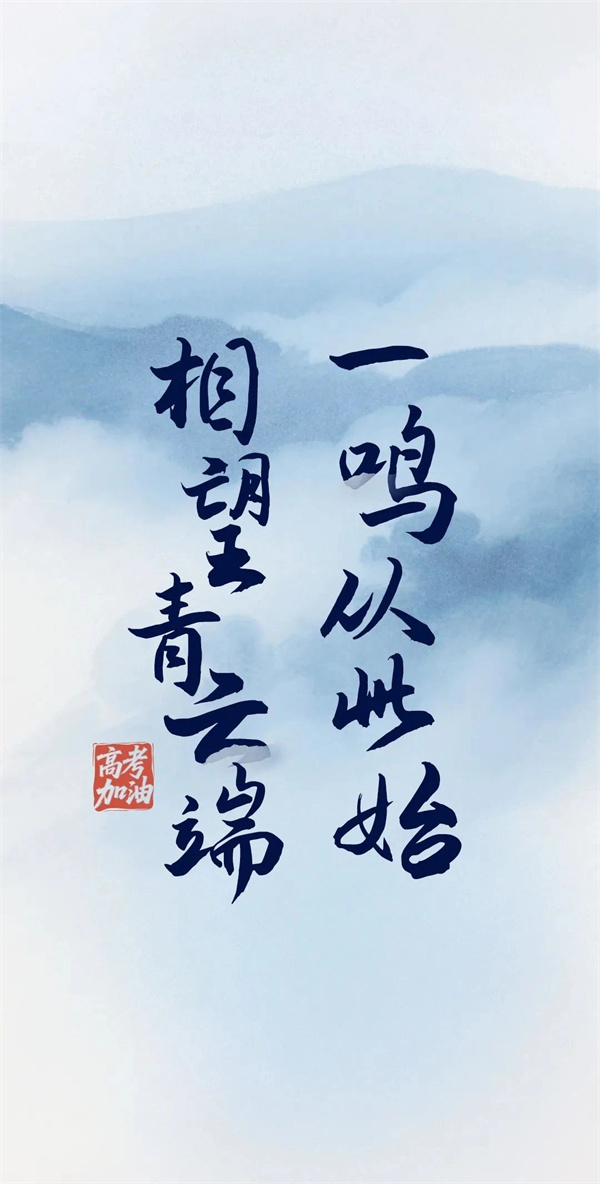 一鸣从此始
相望青云端
高考
加油